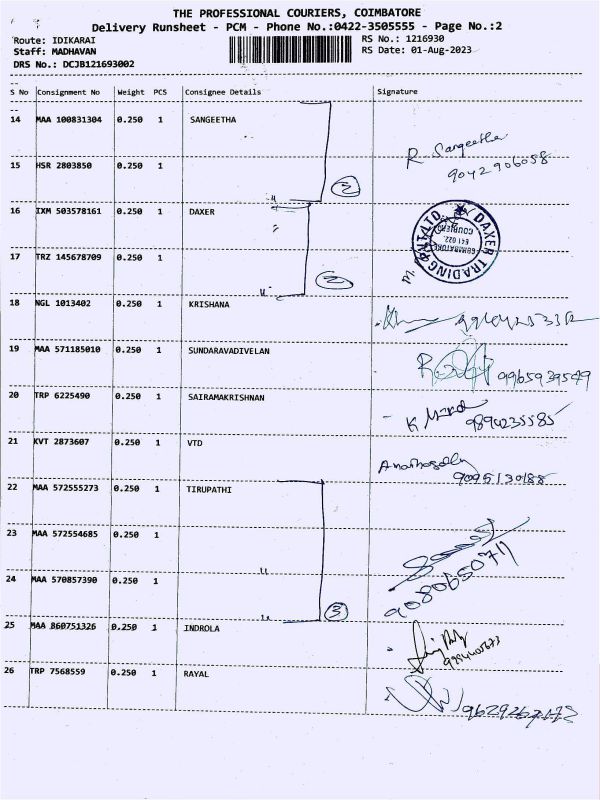 THE PROFESSIONAL COURIERS, COIMBATORE
Delivery Runsheet - PCM - Phone No.:0422-3505555 - Page No.:2
Route: IDIKARAI RS No.: 1216930
Staff: MADHAVAN RS Date: 01-Aug-2023
DRS No.: DCJB121693002
S No Consignment No Weight PCS Consignee Details Signature
14 MAA 100831304 0.250 1 SANGEETHA R Sangeetha
9042906058
15 HSR 2803850 0.250 1
2
16 IXM 503578161 0.250 1 DAXER
DAXER TRADING PVT LTD
COIMBATORE
641 022.
COURIERS
17 TRZ 145678709 0.250 1
2
18 NGL 1013402 0.250 1 KRISHANA
19 MAA 571185010 0.250 1 SUNDARAVADIVELAN 9965939549
20 TRP 6225490 0.250 1 SAIRAMAKRISHNAN 9894235585
21 KVT 2873607 0.250 1 VTD
9095130188
22 MAA 572555273 0.250 1 TIRUPATHI
23 MAA 572554685 0.250 1
9080650711
24 MAA 570857390 0.250 1
3
25 MAA 860751326 0.250 1 INDROLA
26 TRP 7568559 0.250 1 RAYAL